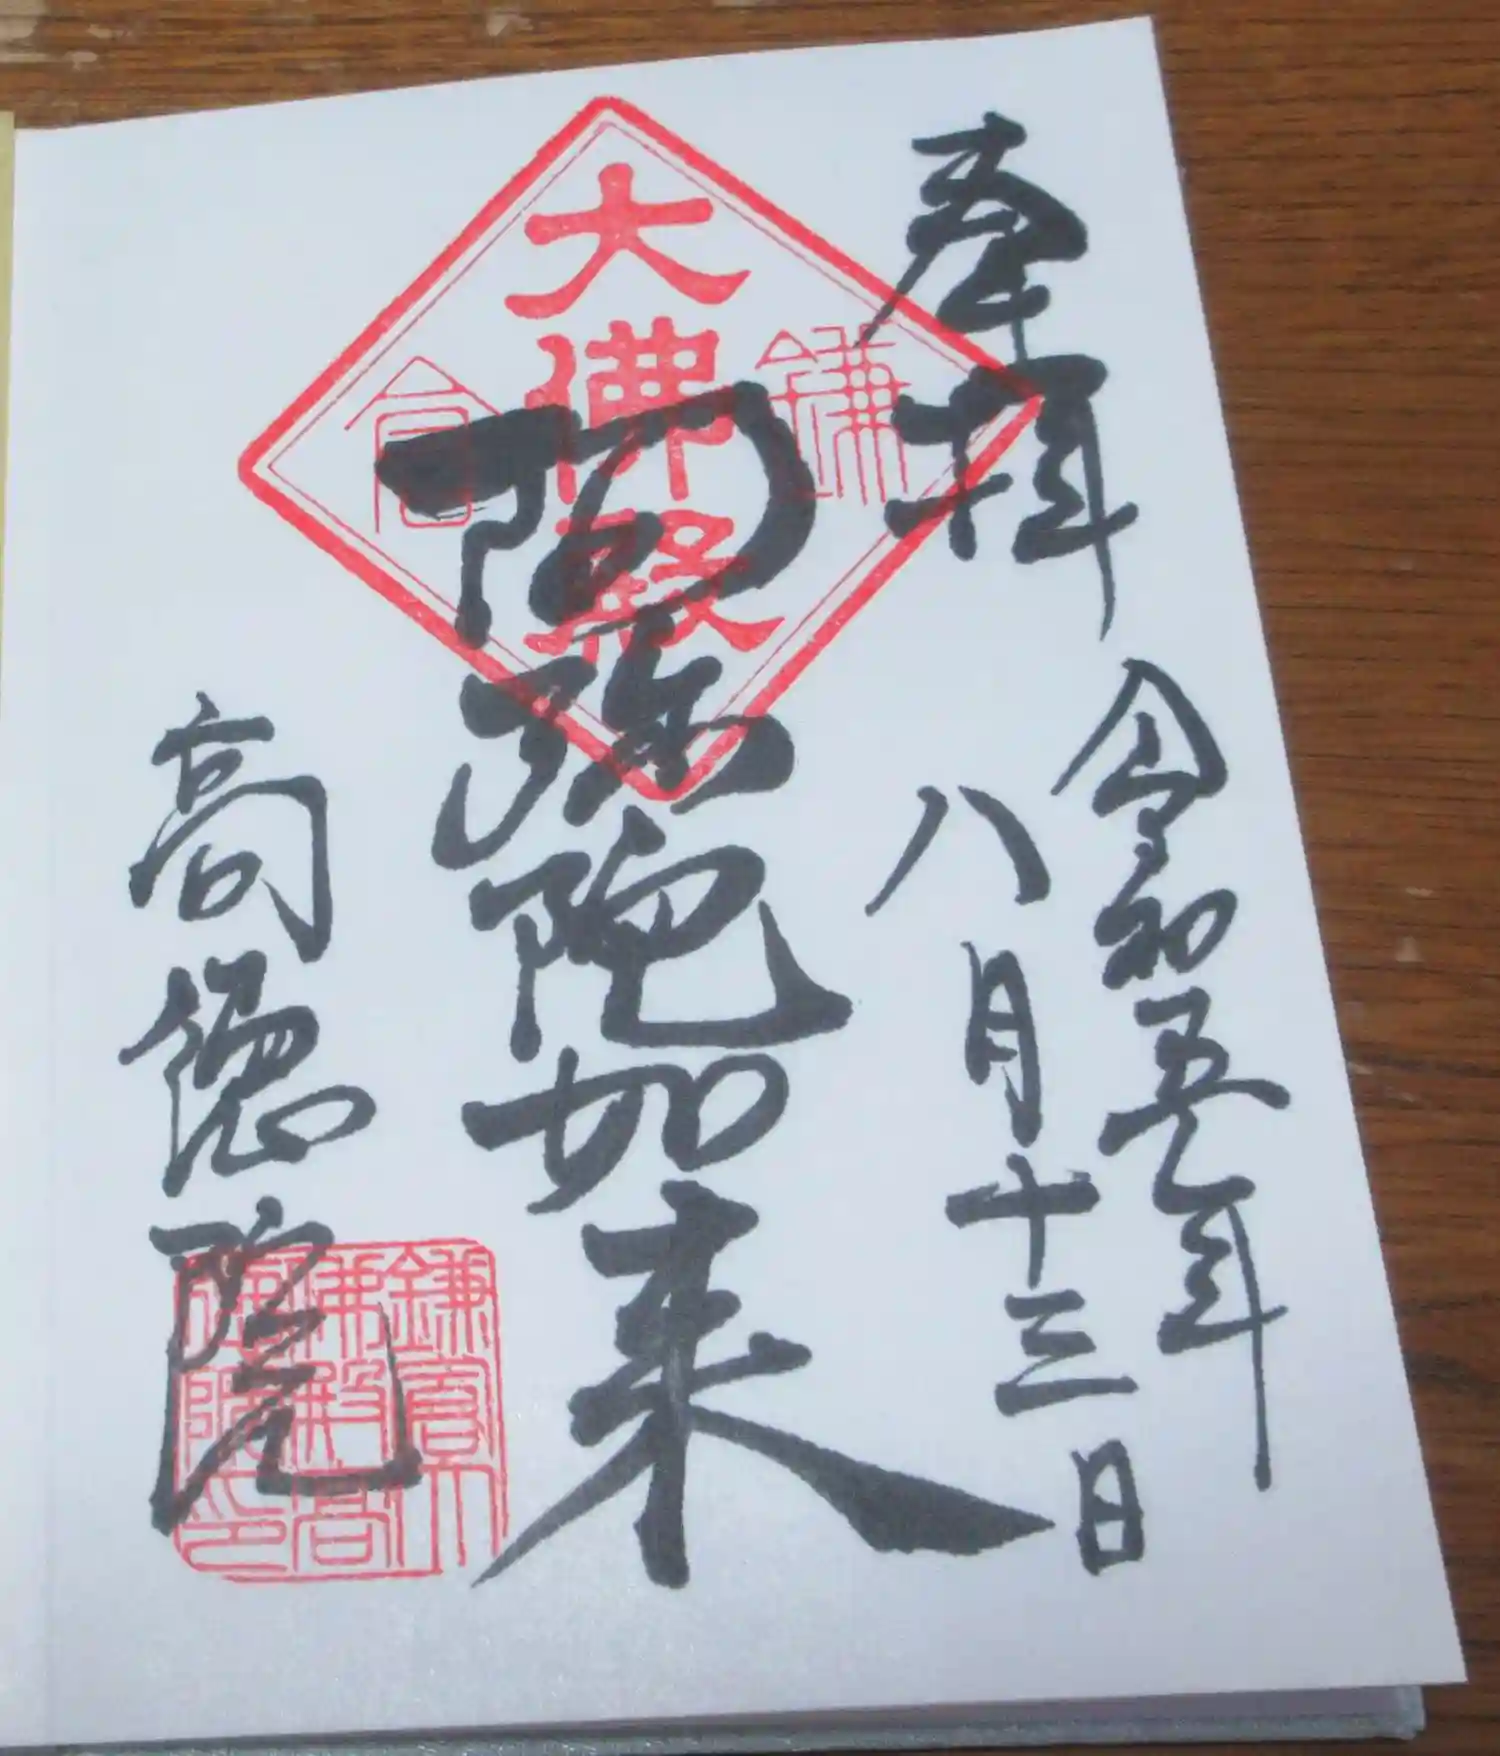 奉拝
令和五年
八月十三日
阿弥陀如来
高徳院
大佛殿
鎌倉
鎌倉大
佛殿高
徳院印